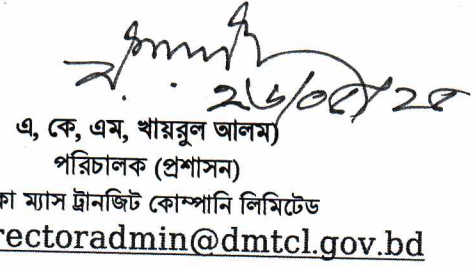 ২৬/০৫/২৫
এ, কে, এম, খায়রুল আলম)
পরিচালক (প্রশাসন)
কা ম্যাস ট্রানজিট কোম্পানি লিমিটেড
rectoradmin@dmtcl.gov.bd